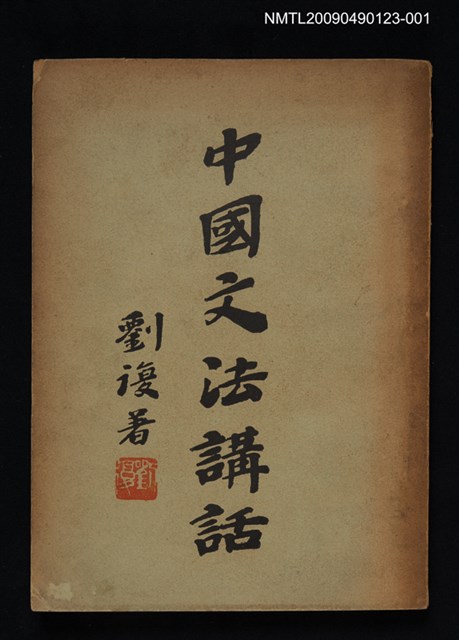 NMTL20090490123-001
中國文法講話
劉復著
劉復